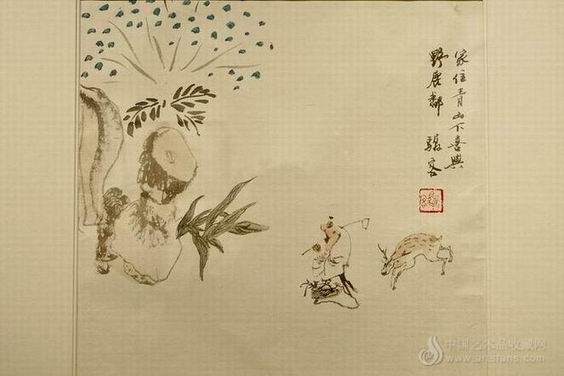 家住青山下喜與
野鹿鄰 驥客
中国艺术品收藏网
www.artsfans.com